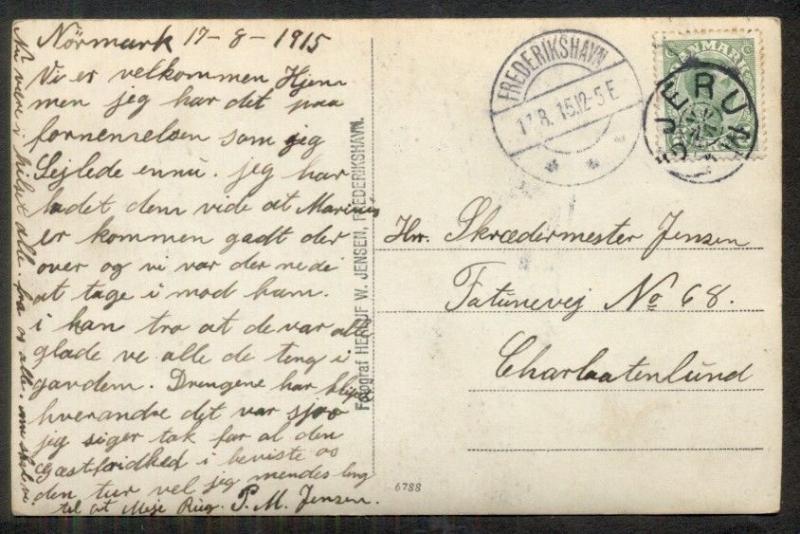 Nörmark 17-8-1915
Vi er velkommen Hjem
men jeg har det paa
fornemelsen som jeg
Sejlede ennu. jeg har
ladet dem vide at Marinus
er kommen gadt der
over og vi var der nede
at tage i mod ham.
i kan tro at de var alle
glade ve alle de teng i
gav dem. Drengene har
hverandre det var sjov
jeg siger tak for al den
gæstfridhed i beviste os
den tur vel jeg mendes long
til at Mise Rug. P. M. Jensen.
Nu være i hilset alle. fra os alle.
Fotograf HERLUF W. JENSEN, FREDERIKSHAVN.
6788
FREDERIKSHAVN
17.8.15.12-5 E
DANMARK
GJERUM
Hr. Skrædermester Jensen
Fatunevej No 68.
Charlaatenlund